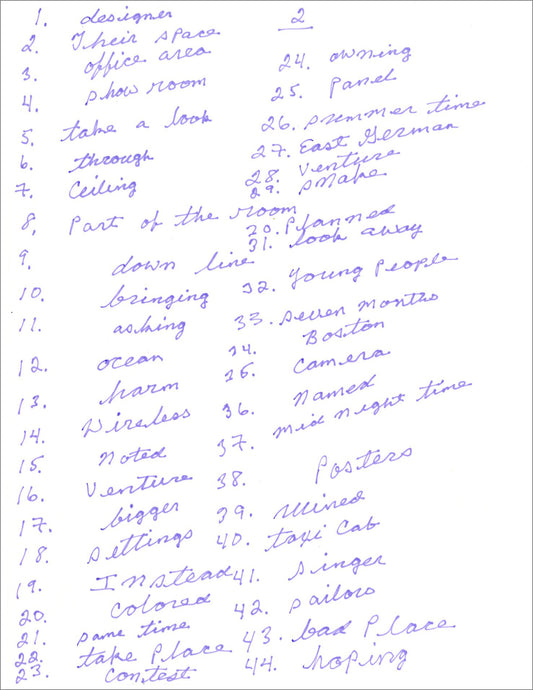 1. designer
2. Their space
3. office area
4. show room
5. take a look
6. through
7. Ceiling
8. Part of the room
9. down line
10. bringing
11. asking
12. ocean
13. harm
14. Wireless
15. Noted
16. Venture
17. bigger
18. settings
19. Instead
20. Colored
21. same time
22. take Place
23. contest
2
24. owning
25. Panel
26. summer time
27. East German
28. Venture
29. snake
30. Planned
31. look away
32. young people
33. seven months
34. Boston
35. Camera
36. Named
37. mid night time
38. Posters
39. ruined
40. taxi cab
41. singer
42. sailors
43. bad Place
44. hoping